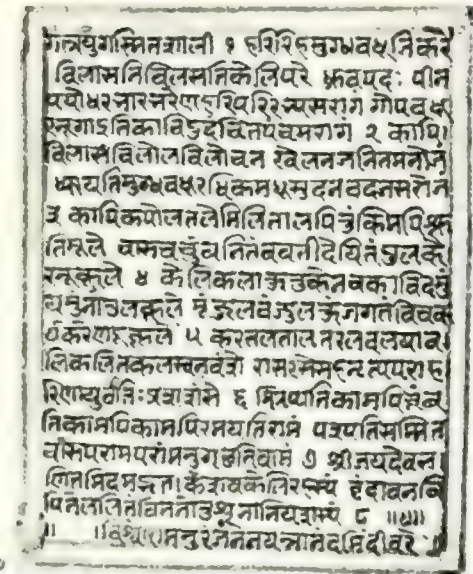 गल्लयुगस्मितशाली १ हरिरिहमुग्धवधूनिकरे
विलासिनिविलसतिकेलिपरे ध्रुवपदः पीन
पयोधरभारभरेणहरिंपरिरभ्यसरागं गोपवधू
रनुगाऽतिकाविदुदंचितपंचमरागं २ कापि
विलासविलोलविलोचन खेलनजनितमनोजं
ध्यायतिमुग्धवधूरधिकमधुसूदनवदनसरोजं
३ कापिकपोलतलेमिलितालपितुंकिमपिश्रु
तिमूले चारुचुचुंबनितंबवतीदयितंपुलकै
रनुकूले ४ केलिकलाकुतुकेनचकाचिदमुं
यमुनाजलकूले मंजुलवंजुलकुंजगतंविचक
र्षकरेणदुकूले ५ करतलतालतरलवलयाव
लिकलितकलस्वनवंशे रासरसेसहनृत्यपराह
रिणायुवतिःप्रशशंसे ६ श्लिष्यतिकामपिचुंब
तिकामपिकामपिरमयतिरामं पश्यतिसस्मित
चारुपरामपरामनुगच्छतिवामं ७ श्रीजयदेवभ
णितमिदमद्भुत। केशवकेलिरहस्यं वृंदावनवि
पिनेललितंवितनोतुशुभानियशस्यं ८ ॥॥
॥ विश्वेषामनुरंजनेनजयन्नानंदमिंदीवर